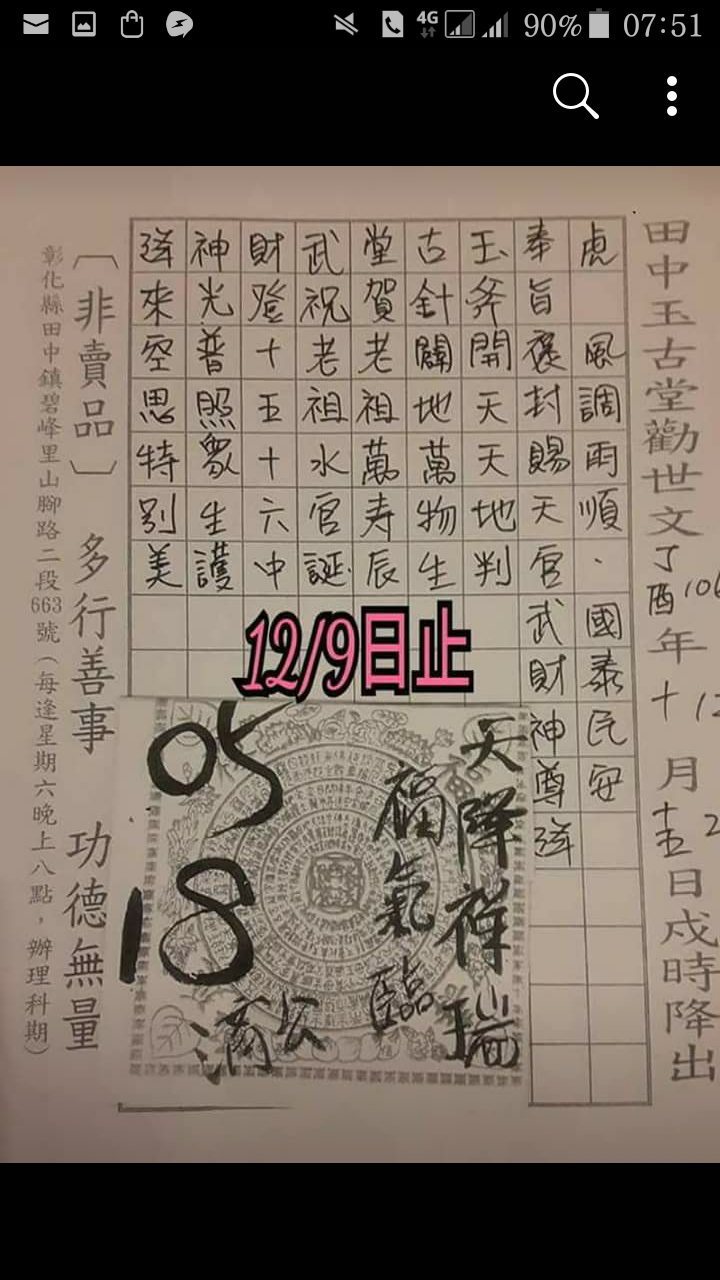 4G 90% 07:51
田中玉古堂勸世文丁酉106年十12月十五2日戌時降出
虎 風調雨順．國泰民安
奉旨褒封賜天官武財神尊
玉斧開天天地判
古針闢地萬物生
堂賀老祖萬寿辰
武祝老祖水官誕
財登十五十六中
神光普照眾生護
來空思特別美
12/9日止
天降祥瑞
福氣臨
05
18
濟公
〔非賣品〕 多行善事 功德無量
彰化縣田中鎮碧峰里山腳路二段663號（每逢星期六晚上八點，辦理科期）